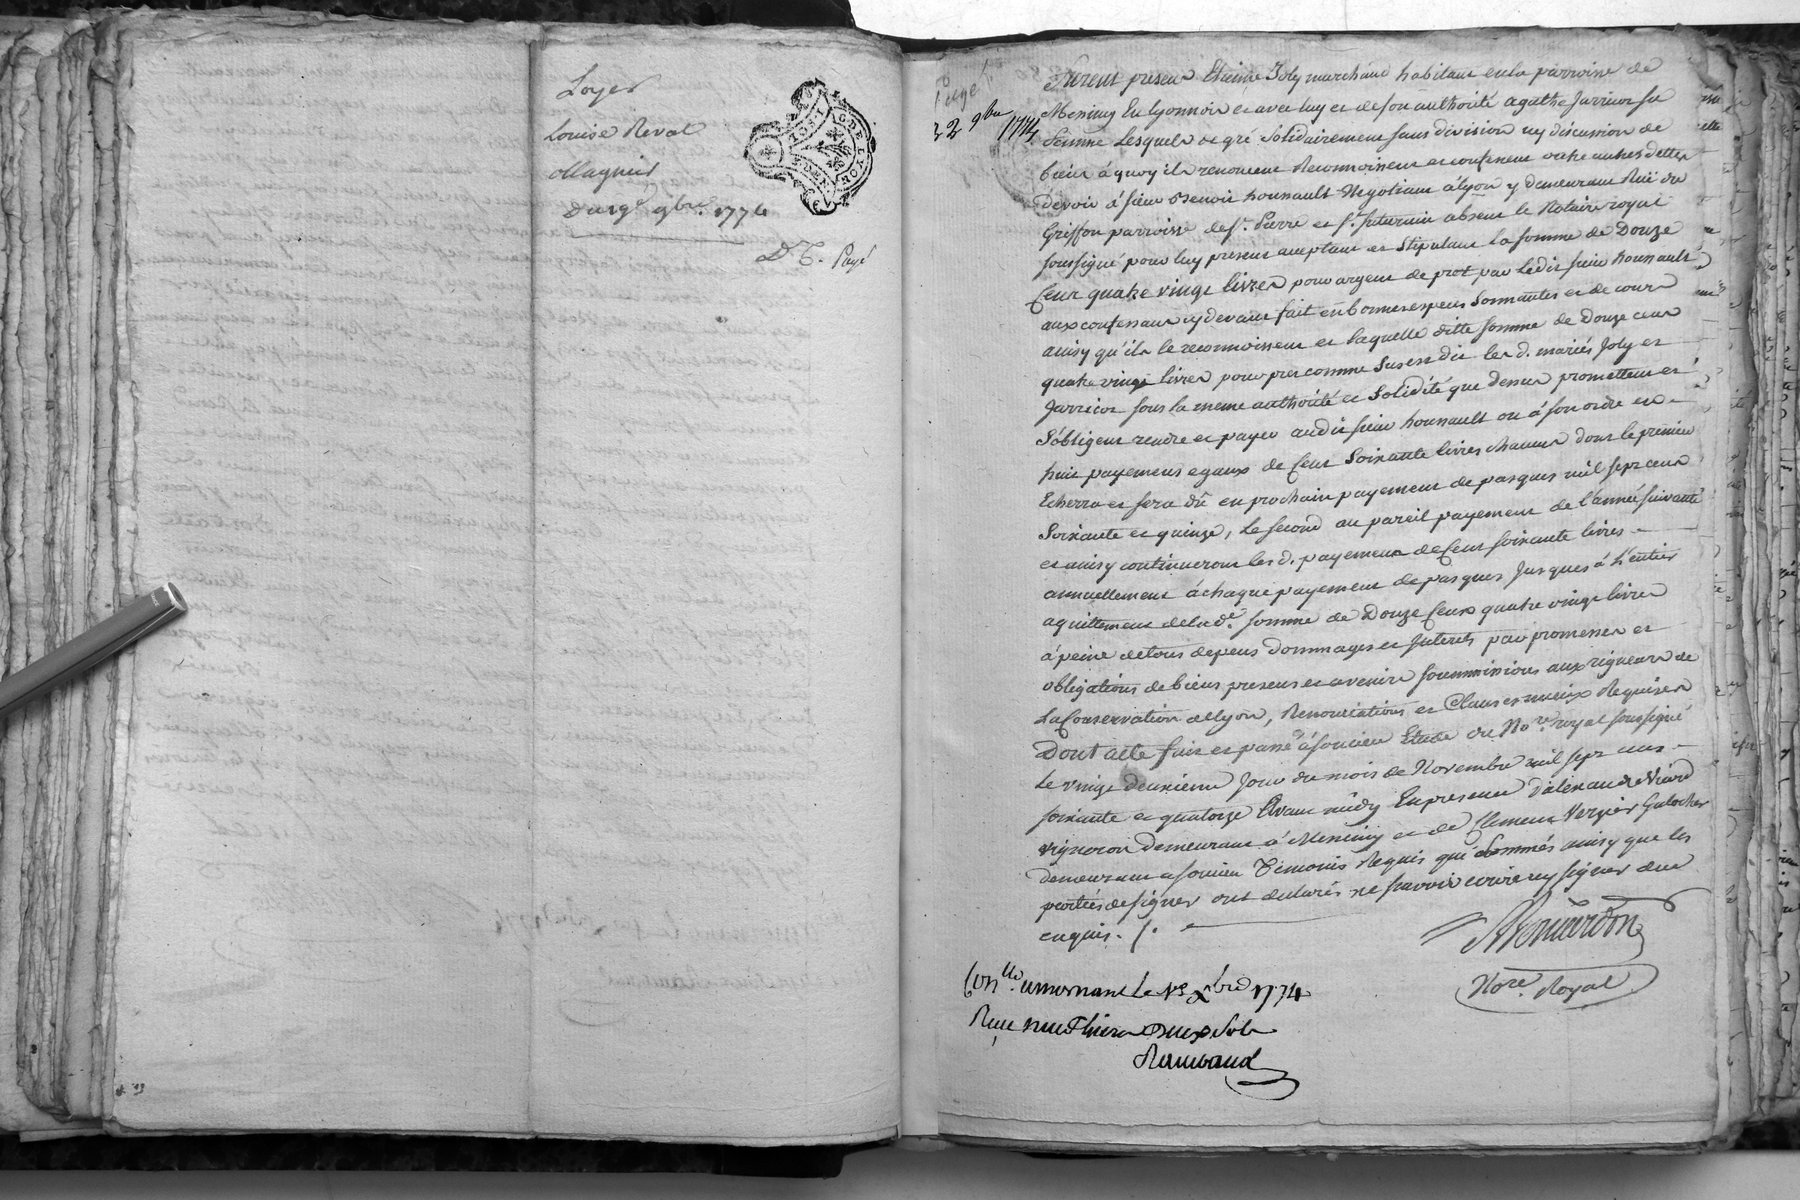 Loyer
Louise Reval
ollagnier
Du 19e 9bre. 1774
D. C. Payé
GDELYON
22 9bre 1774
Furent presens Etienne Joly marchand habitant en la parroisse de
Messimy en Lyonnois et avec luy et de son authorité agathe Jarricot sa
femme Lesquels de gré solidairement sans division ny discussion de
biens à quoy ils renoncent Reconnoissent et confessent outre autres dettes
devoir à sieur Benoit hounault Negotiant à lyon y demeurant Ruë du
Griffon parroisse de st. Pierre et st. Saturnin absent le Notaire royal
soussigné pour luy present acceptant et stipulant la somme de Douze
Cent quatre vingt livres pour argent de prêt par ledit sieur hounault
aux confessans cy devant fait en bonnes especes sonnantes et de cours
ainsy qu'ils le reconnoissent et laquelle ditte somme de Douze cent
quatre vingt livres pour prêt comme susest dit les d. mariés Joly et
Jarricot sous la meme authorité et Solidité que dessus promettent et
S'obligent rendre et payer audit sieur hounault ou à son ordre en
huit payemens egaux de Cent Soixante livres chacun dont le premier
Echerra et sera dû en prochain payement de pasques mil sept cent
Soixante et quinze, le second au pareil payement de l'année suivante
et ainsy continueront les d. payemens de Cent soixante livres
annuellement à chaque payement de pasques Jusques à l'entier
aquittement de la de. somme de Douze Cent quatre vingt livres
à peine de tous depens dommages et Interets par promesses et
obligations de biens presens et avenir soummissions aux rigueurs de
La Conservation de Lyon, Renonciations et Clauses mieux Requises
Dont acte fait et passé à soucieu Etude du Nore. royal soussigné
Le vingt deuxieme jour du mois de Novembre mil sept cent
soixante et quatorze Avant midy En presence d'alexandre Viard
vigneron demeurant à Messimy et de Clement Verzier Galocher
demeurant à soucieu Témoins Requis qui sommés ainsy que les
parties de signer ont declarés ne sçavoir ecrire ny signer de ce
enquis. /.
Nore. Royal
Conlle. a mornant le 1er Xbre 1774
Reçu neuf livres Deux sols
Rambaud